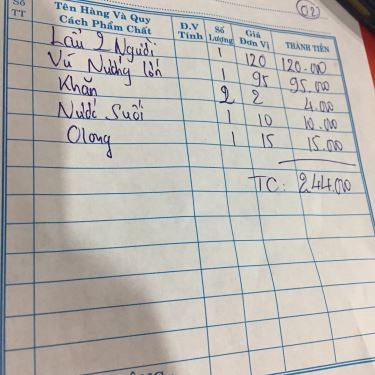 02
Số TT Tên Hàng Và Quy Cách Phẩm Chất Đ.V Tính Số Lượng Giá Đơn Vị THÀNH TIỀN
Lẩu 2 Người 1 120 120.000
Vú Nướng lớn 1 95 95.000
Khăn 2 2 4.000
Nước Suối 1 10 10.000
Olong 1 15 15.000
TC: 244.000